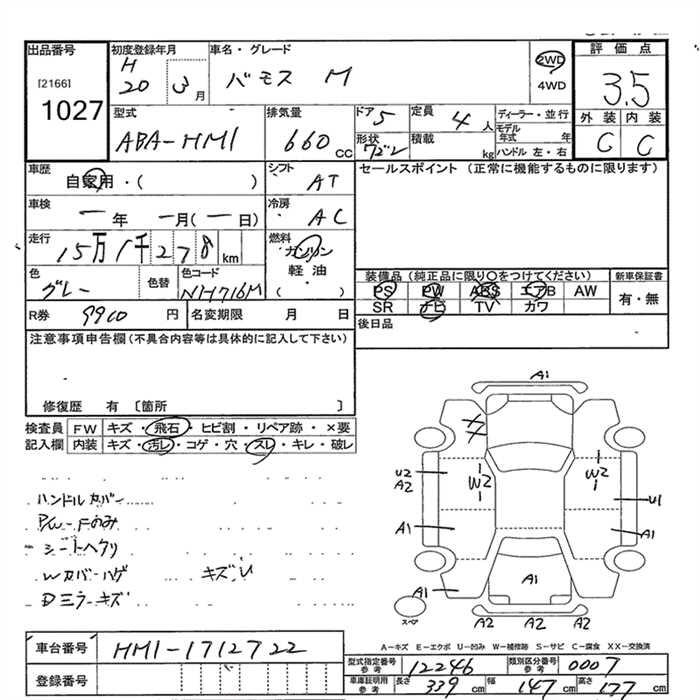 出品番号
[2166]
1027
初度登録年月
H
20 3 月
車名・グレード
バモス M
2WD
4WD
評価点
3.5
外装 内装
C C
型式
ABA-HM1
排気量
660 CC
ドア 5
形状 ワゴン
定員 4 人
積載 kg
ディーラー・並行
モデル年式 年
ハンドル 左・右
車歴
自家用・( )
シフト
AT
セールスポイント (正常に機能するものに限ります)
車検
一 年 一 月 (一日)
冷房
AC
走行
15万1千278 km
燃料
ガソリン
軽油
( )
色
グレー
色替
色コード
NH716M
装備品 (純正品に限り○をつけてください)
PS PW ABS エアB AW
SR ナビ TV カワ
新車保証書
有・無
R券 9900 円
名変期限 月 日
後日品
注意事項申告欄 (不具合内容等は具体的に記入して下さい)
修復歴 有 〔箇所 〕
検査員 FW キズ・飛石・ヒビ割・リペア跡・×要
記入欄 内装 キズ・汚レ・コゲ・穴・スレ・キレ・破レ
ハンドルカバー
P/W-Fのみ
シートヘタリ
Wカバーハゲ キズU
Dミラーキズ
A1
U2
A2
W2
W2
U1
A1
A1
A1
A1
スペア
A2 A2 A2
A-キズ E-エクボ U-凹み W-補修跡 S-サビ C-腐食 XX-交換済
車台番号
HM1-1712722
登録番号
型式指定番号 参考 12246
類別区分番号 参考 0007
車庫証明用 参考 長さ 339 cm 幅 147 cm 高さ 177 cm